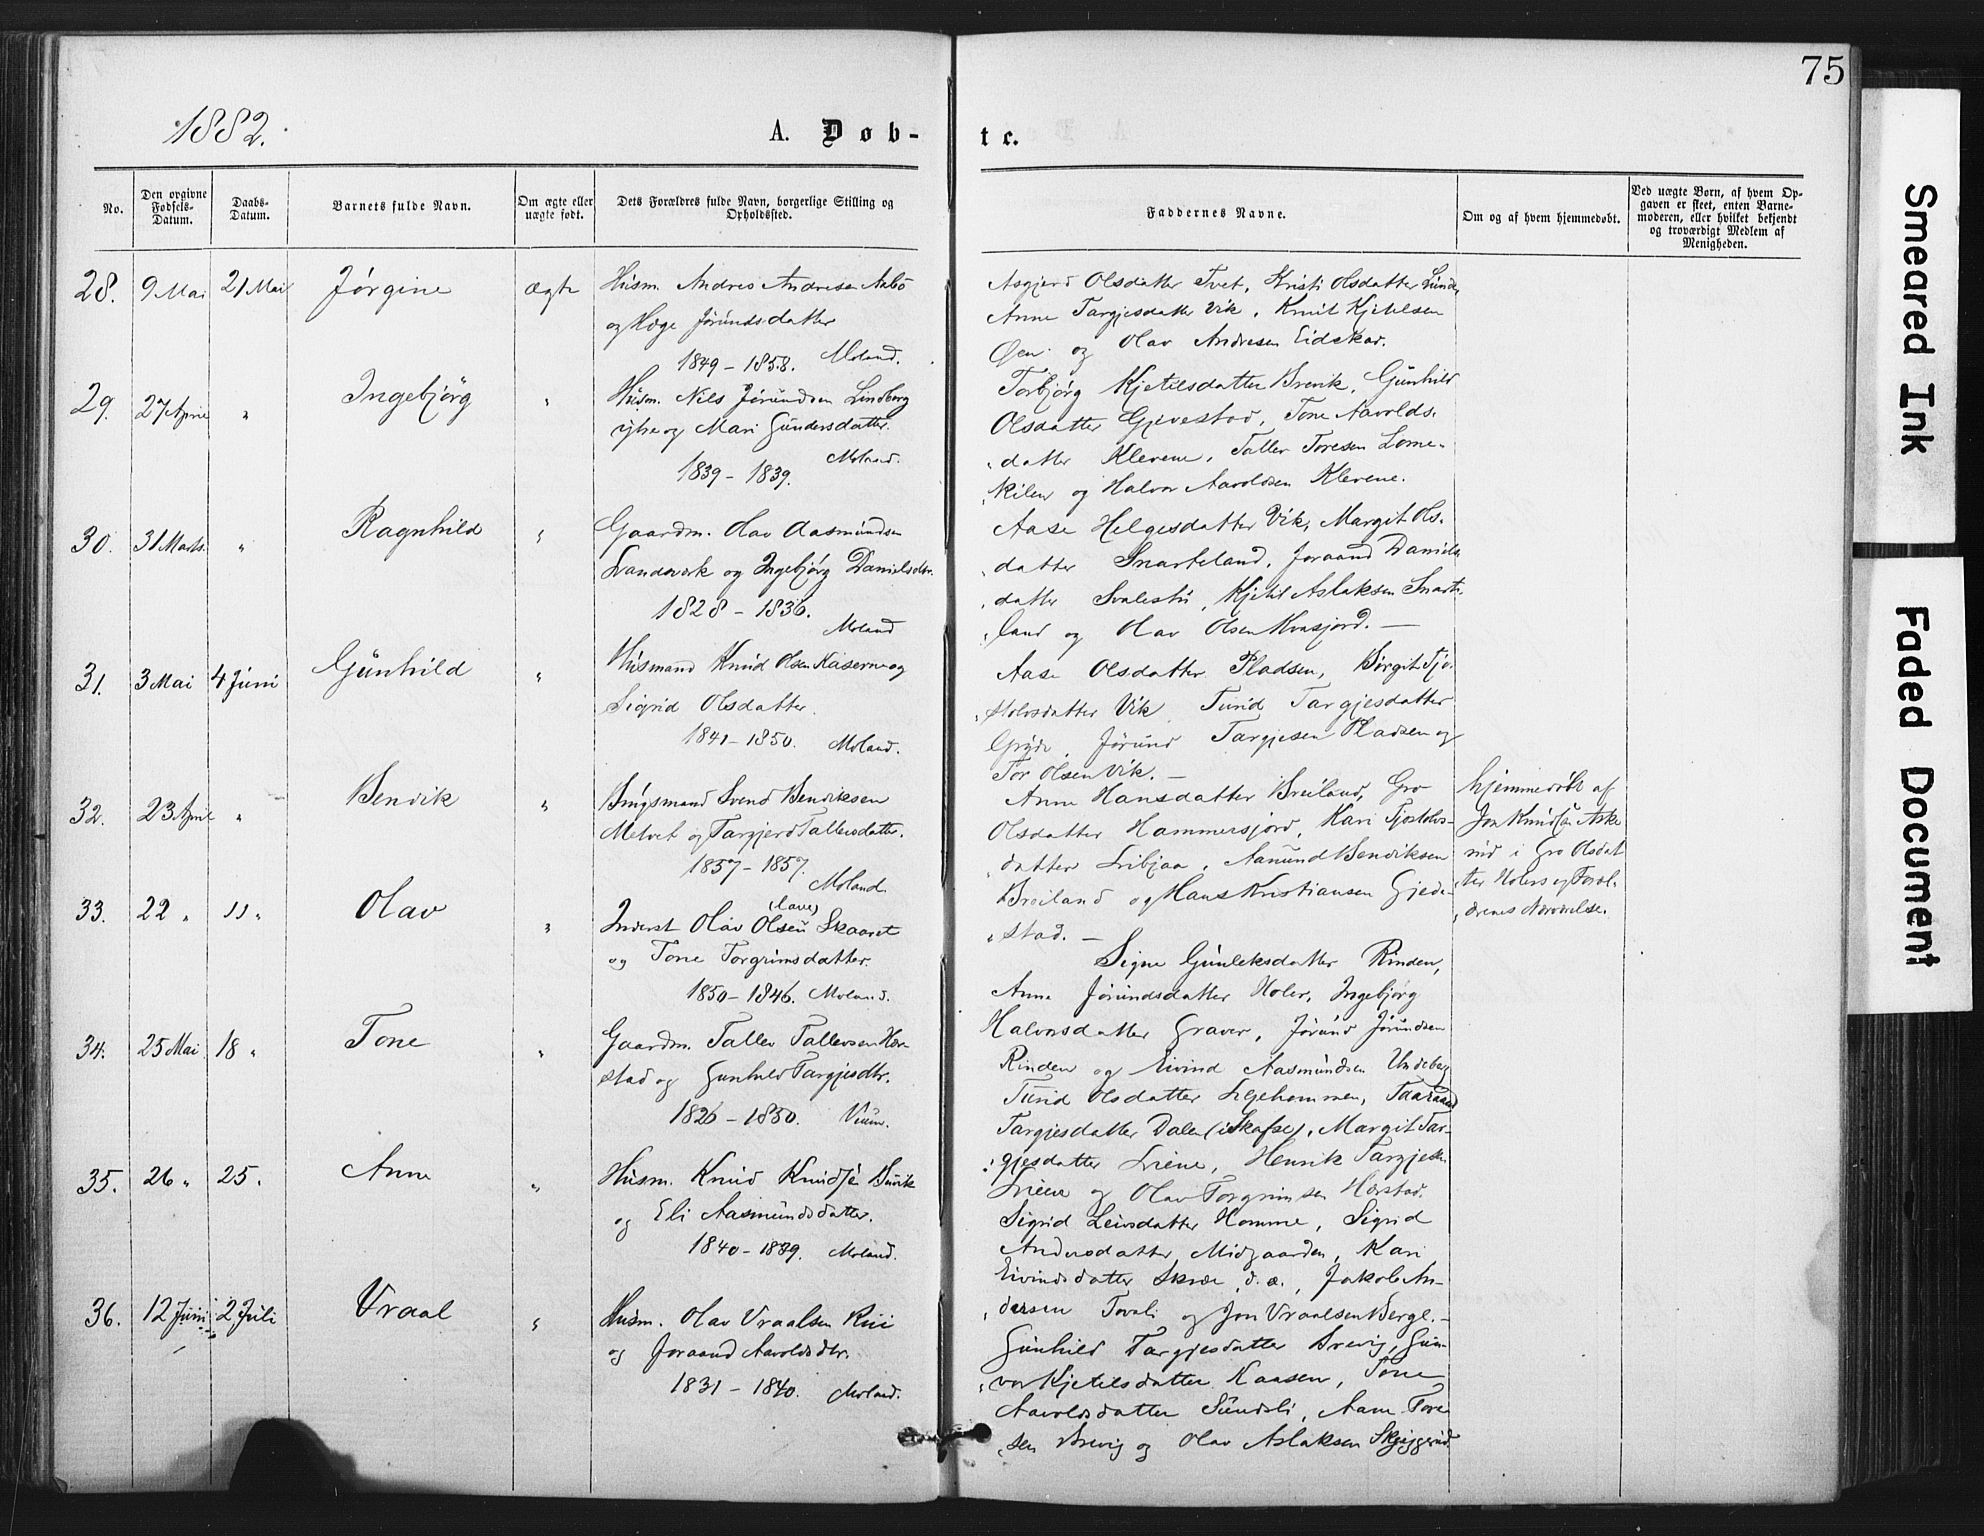 75
1882.
A. Døb-
te.
No.
Den opgivne Fødsels-Datum.
Daabs-Datum.
Barnets fulde Navn.
Om ægte eller uægte født.
Dets Forældres fulde Navn, borgerlige Stilling og Opholdssted.
Faddernes Navne.
Om og af hvem hjemmedøbt.
Ved uægte Børn, af hvem Opgaven er skeet, enten Barnemoderen, eller hvilket bekjendt og troværdigt Medlem af Menigheden.
28. 9 Mai 21 Mai Jørgine ægte Husm. Andres Andresen Aabø
og Hæge Jørundsdatter
1849 - 1858. Moland.
Asgjerd Olsdatter Tvet, Kristi Olsdatter Linde,
Anne Targjesdatter Vik, Knut Kjetelsen
Øen og Olav Andresen Eidskar.
29. 27 April " Ingebjørg " Husm. Nils Jørundsen Lindberg
ytre og Mari Gundersdatter.
1839 - 1839. Moland.
Torbjørg Kjetilsdatter Brevik, Gunhild
Olsdatter Gjevestad, Tone Aavolds-
datter Klevene, Tallev Toresen Lome-
kilen og Halvor Aavoldsen Klevene.
30. 31 Marts. " Ragnhild " Gaardm. Olav Aasmundsen
Landsverk og Ingebjørg Danielsdtr.
1828 - 1836.
Moland
Aase Helgesdatter Vik, Margit Ols-
datter Snarteland, Joraand Daniels-
datter Svalestu, Kjetil Aslaksen Snarte-
land og Olav Olsen Kvasjord. —
31. 3 Mai 4 Juni Gunhild " Husmand Knud Olsen Kaserne og
Sigrid Olsdatter.
1841 - 1850. Moland.
Aase Olsdatter Pladsen, Børgit Tjo-
stolvsdatter Vik, Turid Targjesdatter
Gryde, Jørund Targjesen Pladsen og
Tor Olsen Vik. —
32. 23 April " Bendik " Bygsmand Svend Bendiksen
Metveit og Targjerd Tallevsdatter.
1857 - 1857.
Moland.
Anne Hansdatter Breiland, Gro
Olsdatter Hammersjord, Kari Tjostolvs-
datter Libjaa, Aanund Bendiksen
Breiland og Hans Kristiansen Gjede-
stad. —
hjemmedøbt af
Jon Knudsen Aske
rud i Gro Olsdat
ter Holers og Foræl-
drenes Nærværelse.
33. 22 " 11 " Olav " (Lave)
Inderst Olav Olsen Skaaret
og Tone Torgrimsdatter.
1850 - 1846. Moland.
Signe Gunleksdatter Rinden,
Anne Jørundsdatter Holer, Ingebjørg
Halvorsdatter Graver, Jørund Jørundsen
Rinden og Eivind Aasmundsen Undeberg
34. 25 Mai 18 " Tone " Gaardm. Tallev Tallevsen Hær-
stad og Gunhild Targjesdtr.
1826 - 1850. Vium.
Turid Olsdatter Legehommen, Taaraand
Targjesdatter Dalen (i Skafse), Margit Tar-
gjesdatter Liene, Henrik Targjesen
Liene og Olav Torgrimsen Hærstad.
35. 26 " 25 " Anne " Husm. Knud Knudsen Buvik
og Eli Aasmundsdatter.
1840 - 1839. Moland.
Sigrid Leivsdatter Homme, Sigrid
Andersdatter Midgaarden, Kari
Eivindsdatter Skree d. æ., Jakob An-
dersen Tovsli og Jon Vraalsen Berge. —
36. 12 Juni 2 Juli Vraal " Husm. Olav Vraalsen Rui
og Joraand Aavoldsdtr.
1831 - 1840. Moland.
Gunhild Targjesdatter Brevig, Gun-
vor Kjetilsdatter Kaasen, Tone
Aavoldsdatter Sundsli, Aane Tore-
sen Brevig og Olav Aslaksen Skjeggerud.
Smeared Ink
Faded Document